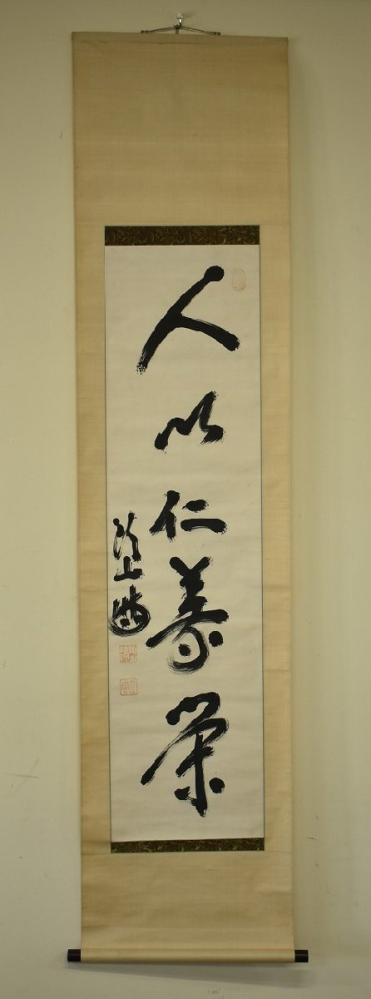 人以仁義栄